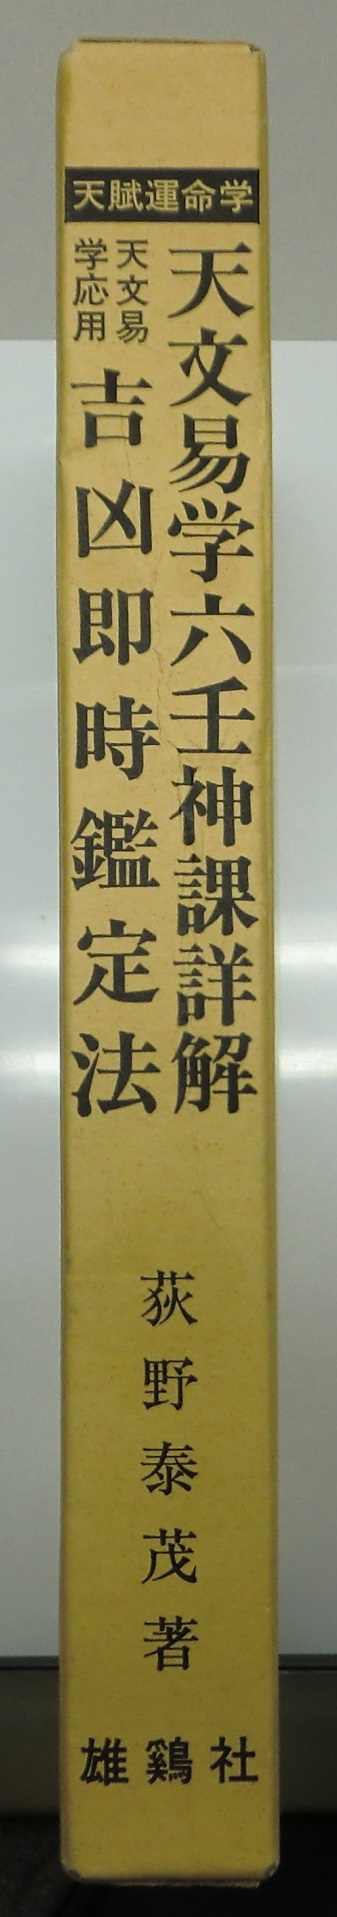 天賦運命学
天文易学六壬神課詳解
天文易
学応用
吉凶即時鑑定法
荻野泰茂著
雄鶏社